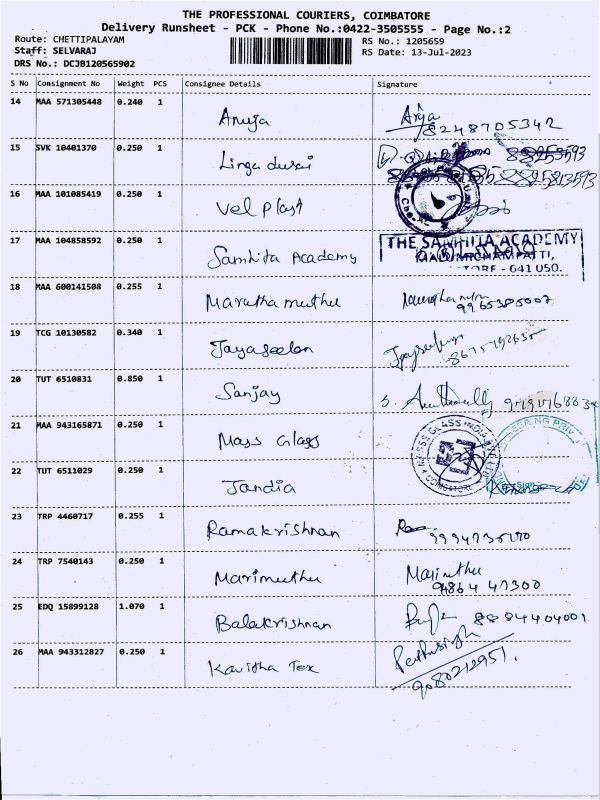 THE PROFESSIONAL COURIERS, COIMBATORE
Delivery Runsheet - PCK - Phone No.:0422-3505555 - Page No.:2
Route: CHETTIPALAYAM RS No.: 1205659
Staff: SELVARAJ RS Date: 13-Jul-2023
DRS No.: DCJB120565902
S No Consignment No Weight PCS Consignee Details Signature
14 MAA 571305448 0.240 1 Anuja 8248705342
15 SVK 10401370 0.250 1 Linga durai
16 MAA 101085419 0.250 1 Vel Plast
17 MAA 104858592 0.250 1 Samhita Academy THE SAMHITA ACADEMY
641 050.
18 MAA 600141508 0.255 1 Marutha muthu
19 TCG 10130582 0.340 1 Jayaseelan
20 TUT 6510831 0.850 1 Sanjay
21 MAA 943165871 0.250 1 Mass Glass
COIMBATORE
22 TUT 6511029 0.250 1 Jandia
23 TRP 4460717 0.255 1 Ramakrishnan
24 TRP 7540143 0.250 1 Marimuthu 
25 EDQ 15899128 1.070 1 Balakrishnan 8884404001
26 MAA 943312827 0.250 1 Kavitha Tex
9080212951.